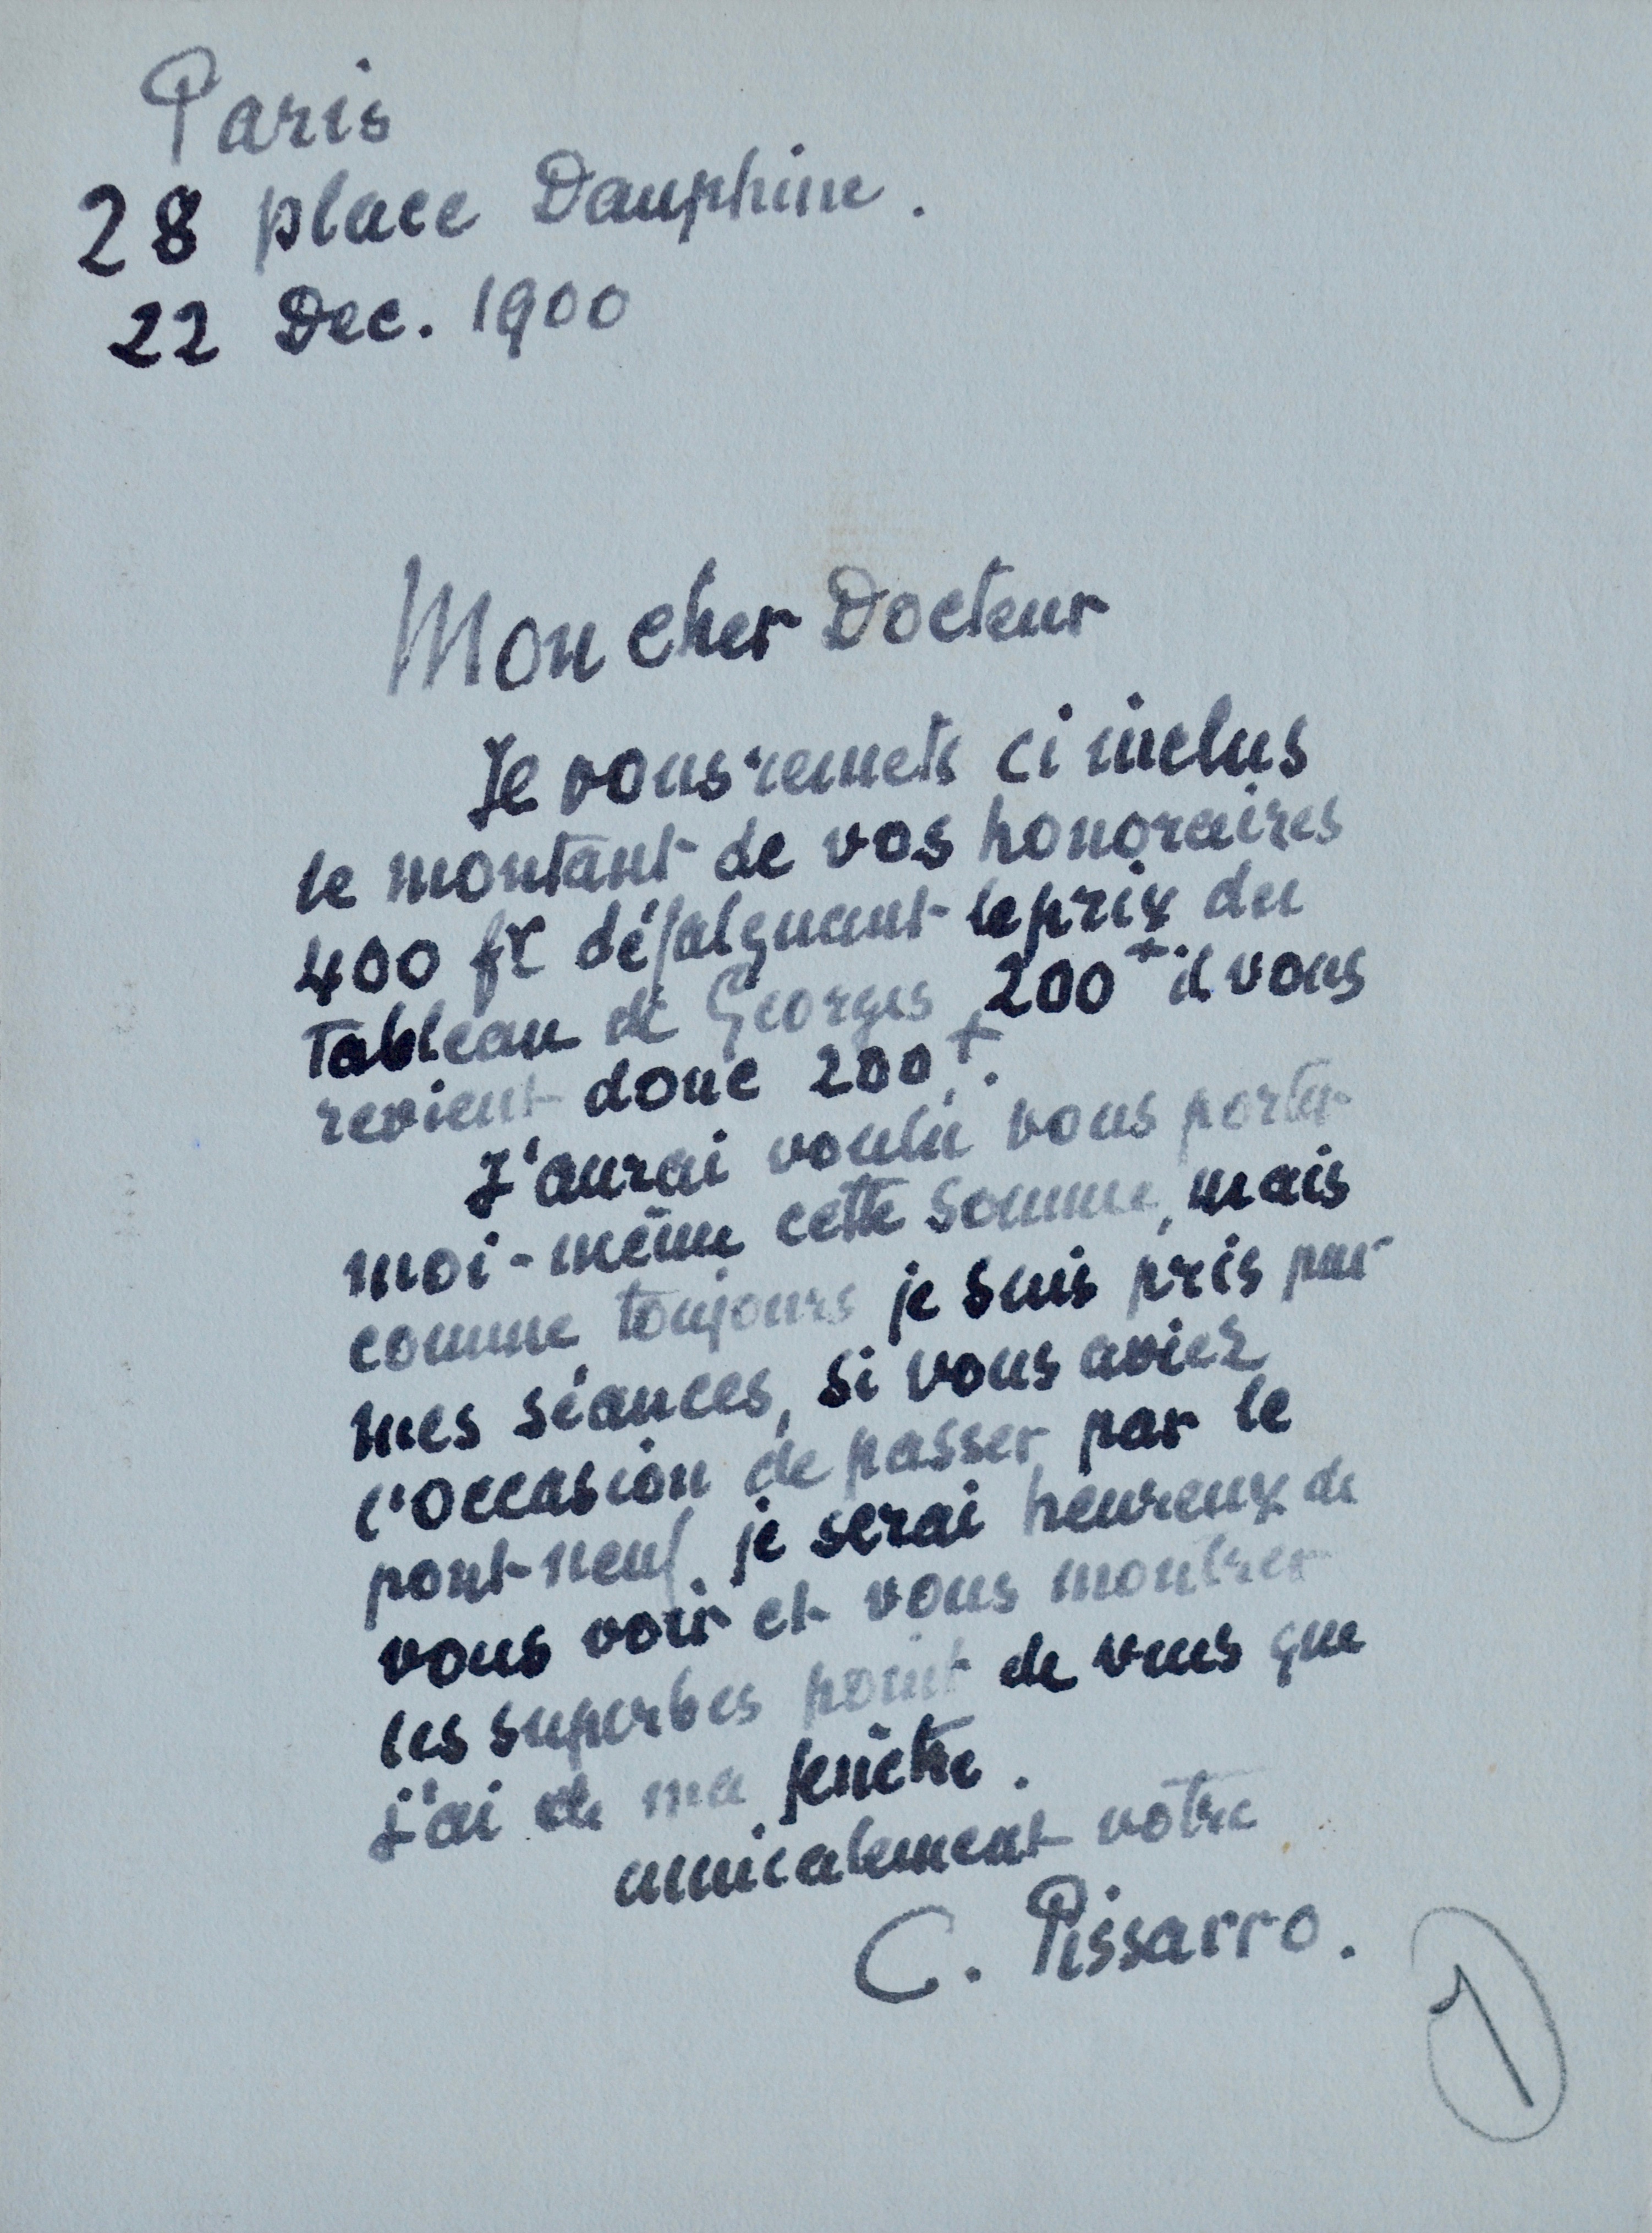 Paris
28 place Dauphine.
22 Dec. 1900
Mon cher Docteur
Je vous remets ci inclus
le montant de vos honoraires
400 fr défalquant le prix du
Tableau de Georges 200 f il vous
revient donc 200 f.
J'aurai voulu vous porter
moi-même cette somme, mais
comme toujours je suis pris par
mes séances, si vous aviez
l'occasion de passer par le
pont-neuf je serai heureux de
vous voir et vous montrer
les superbes point de vues que
j'ai de ma fenêtre.
amicalement votre
C. Pissarro.
1